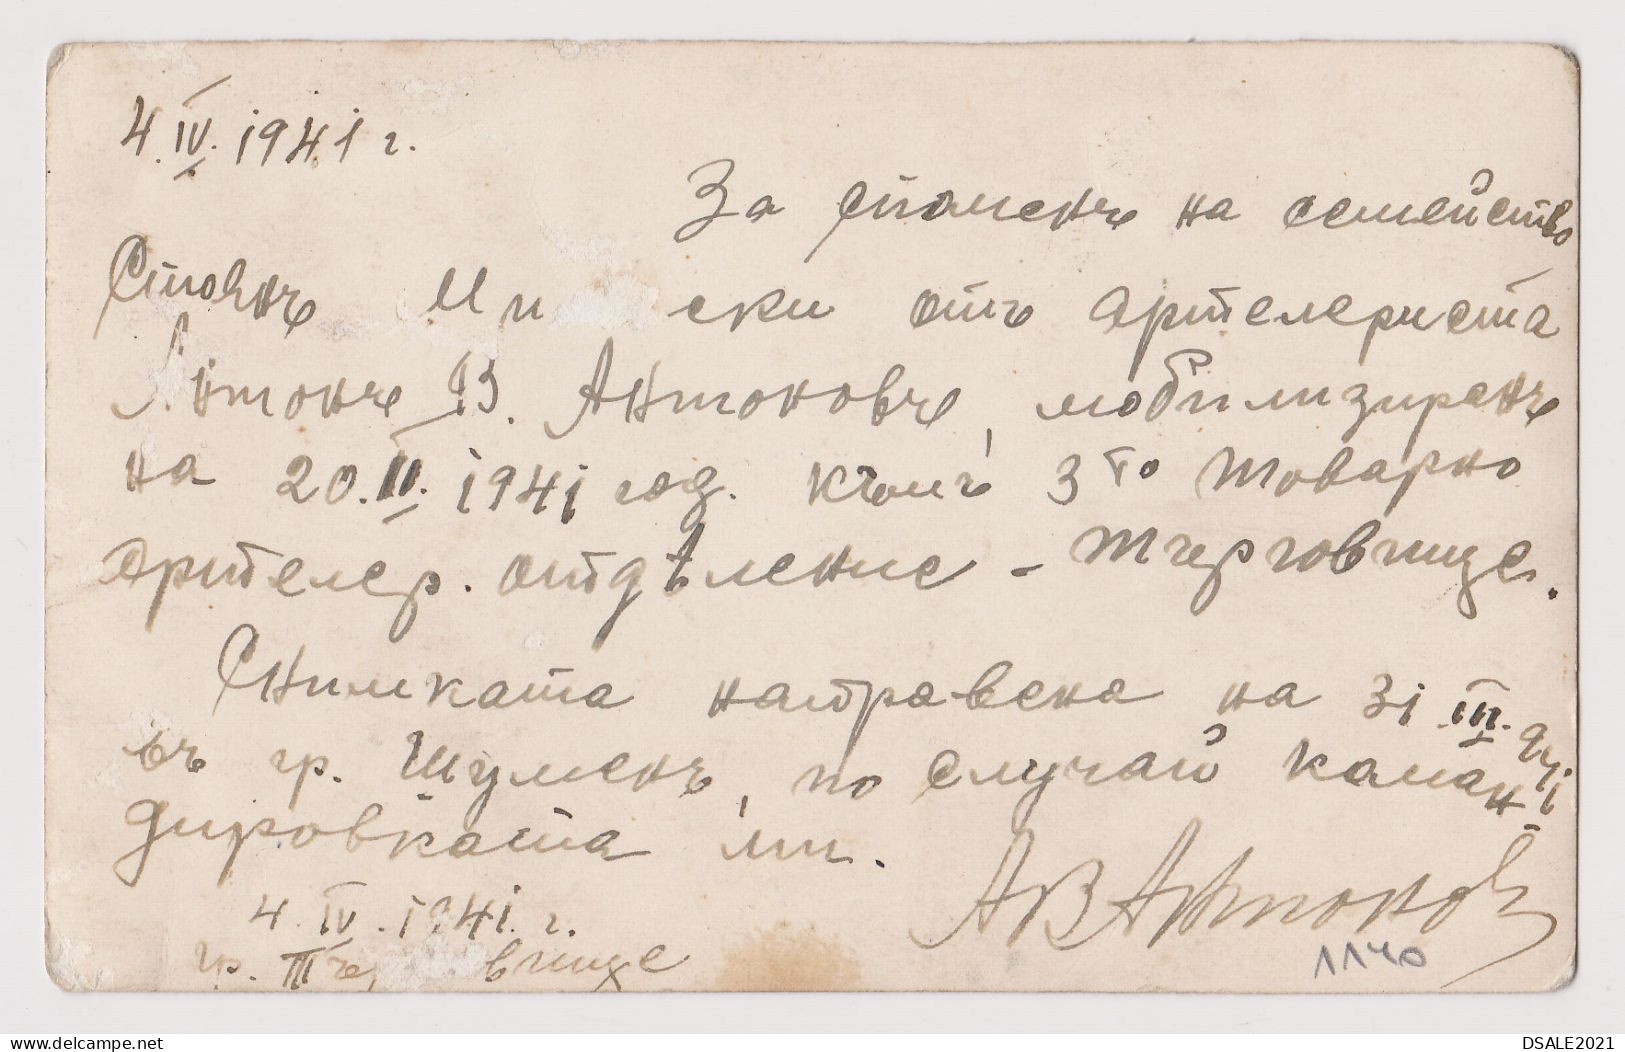 4.IV.1941 г.
За споменъ на семейство
Стоянъ Ми ски отъ артелериста
Антонъ В. Антоновъ, мобилизиранъ
на 20.II.1941 год. къмъ 3то товарно
артелер. отдѣление - Търговище.
Снимката направена на 31.III.941
въ гр. Шуменъ, по случай каман-
дировката ми.
АВАнтонов
4.IV.1941.г.
гр. Тъ вище
1140
www.delcampe.net
DSALE2021